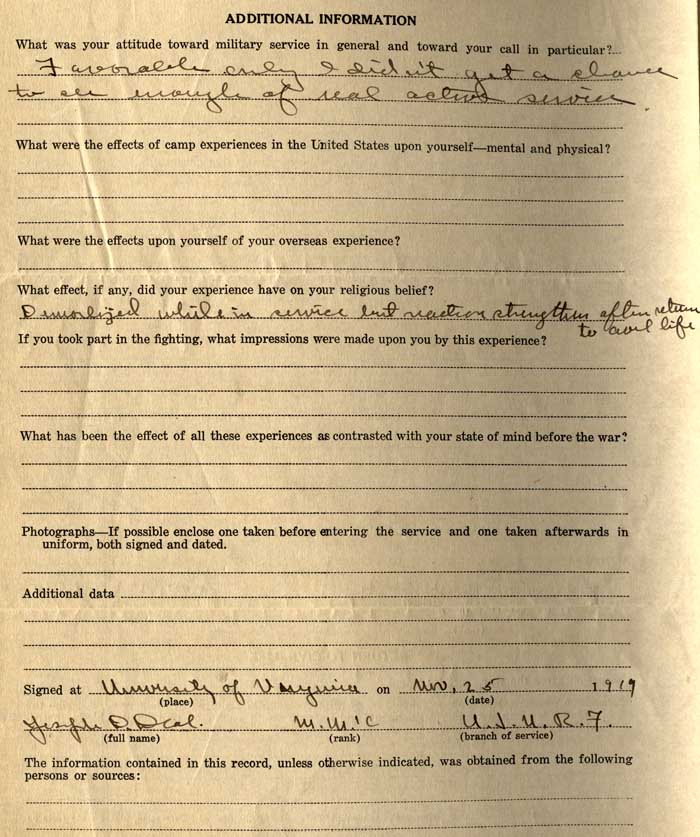 ADDITIONAL INFORMATION
What was your attitude toward military service in general and toward your call in particular?...
Favorable only I didn't get a chance
to see enough of real active service.
What were the effects of camp experiences in the United States upon yourself—mental and physical?
What were the effects upon yourself of your overseas experience?
What effect, if any, did your experience have on your religious belief?
Demorlized while in service but reaction strengthens after return
to civil life
If you took part in the fighting, what impressions were made upon you by this experience?
What has been the effect of all these experiences as contrasted with your state of mind before the war?
Photographs—If possible enclose one taken before entering the service and one taken afterwards in
uniform, both signed and dated.
Additional data
Signed at University of Virginia on Nov. 25 1919
(place) (date)
Joseph D. Deal. M.M.1C U.S.N.R.F.
(full name) (rank) (branch of service)
The information contained in this record, unless otherwise indicated, was obtained from the following
persons or sources: